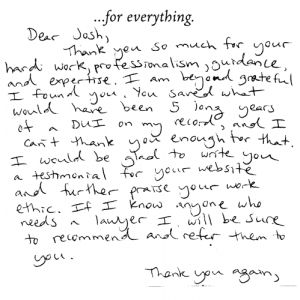 ...for everything.
Dear Josh,
Thank you so much for your
hard work, professionalism, guidance,
and expertise. I am beyond grateful
I found you. You saved what
would have been 5 long years
of a DUI on my record, and I
can't thank you enough for that.
I would be glad to write you
a testimonial for your website
and further praise your work
ethic. If I know anyone who
needs a lawyer I will be sure
to recommend and refer them to
you.
Thank you again,